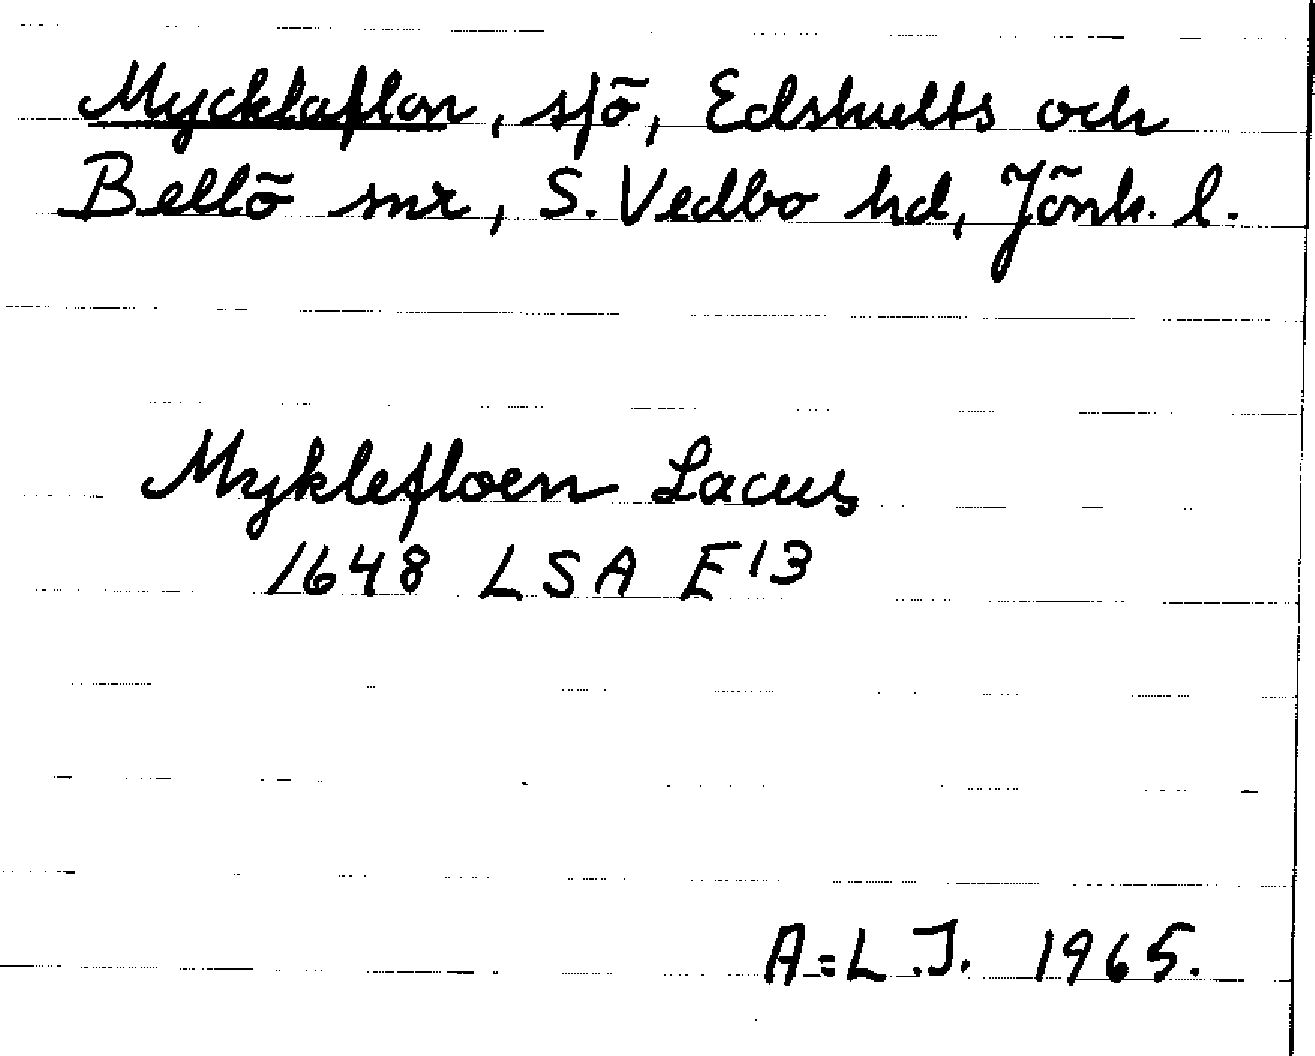 Mycklaflon, sjö, Edshults och
Bellö snr, S. Vedbo hd, Jönk. l.
Myklefloen Lacus
1648 LSA E13
A-L.J. 1965.